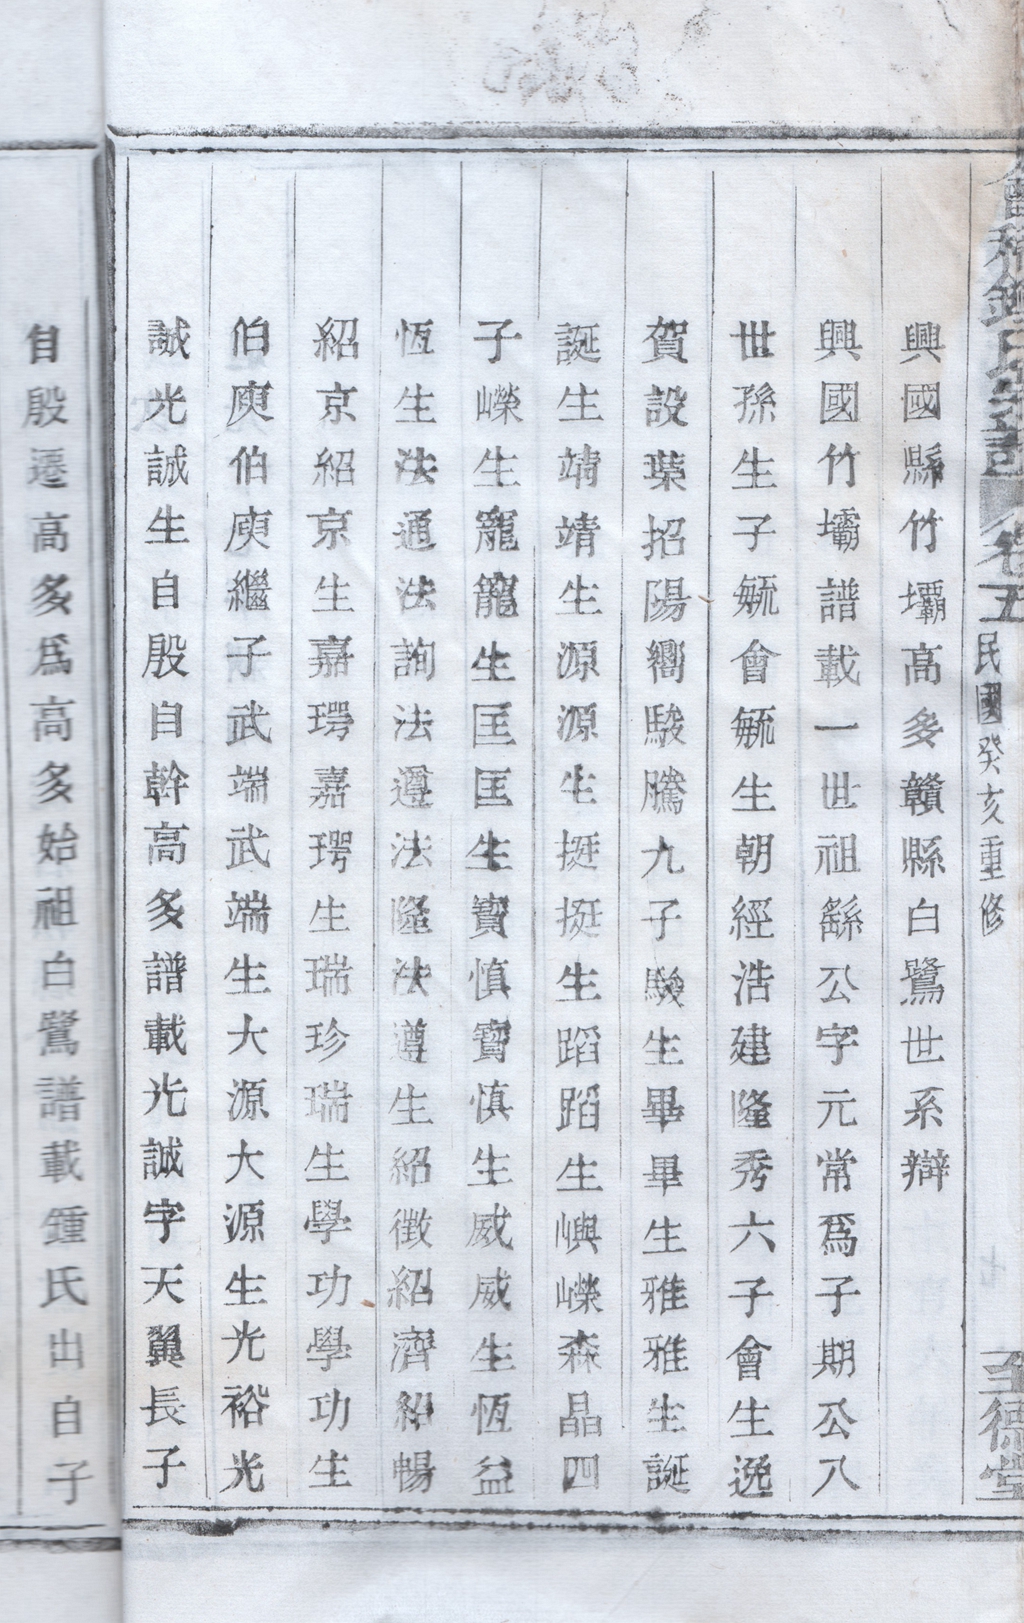 會稽鍾氏宗譜 卷五 民國癸亥重修 至德堂
興國縣竹壩高多贛縣白鷺世系辯
興國竹壩譜載一世祖繇公字元常爲子期公八
世孫生子毓會毓生朝經浩建隆秀六子會生逸
賀設葉招陽嚮駿騰九子駿生畢畢生雅雅生誕
誕生靖靖生源源生挺挺生蹈蹈生嶼嶸森晶四
子嶸生寵寵生匡匡生寶慎寶慎生威威生恆益
恆生法通法詢法遵法隆法遵生紹徵紹濟紹暢
紹京紹京生嘉㻬嘉㻬生瑞珍瑞生學功學功生
伯庾伯庾繼子武端武端生大源大源生光裕光
誠光誠生自殷自幹高多譜載光誠字天翼長子
自殷遷高多爲高多始祖白鷺譜載鍾氏出自子